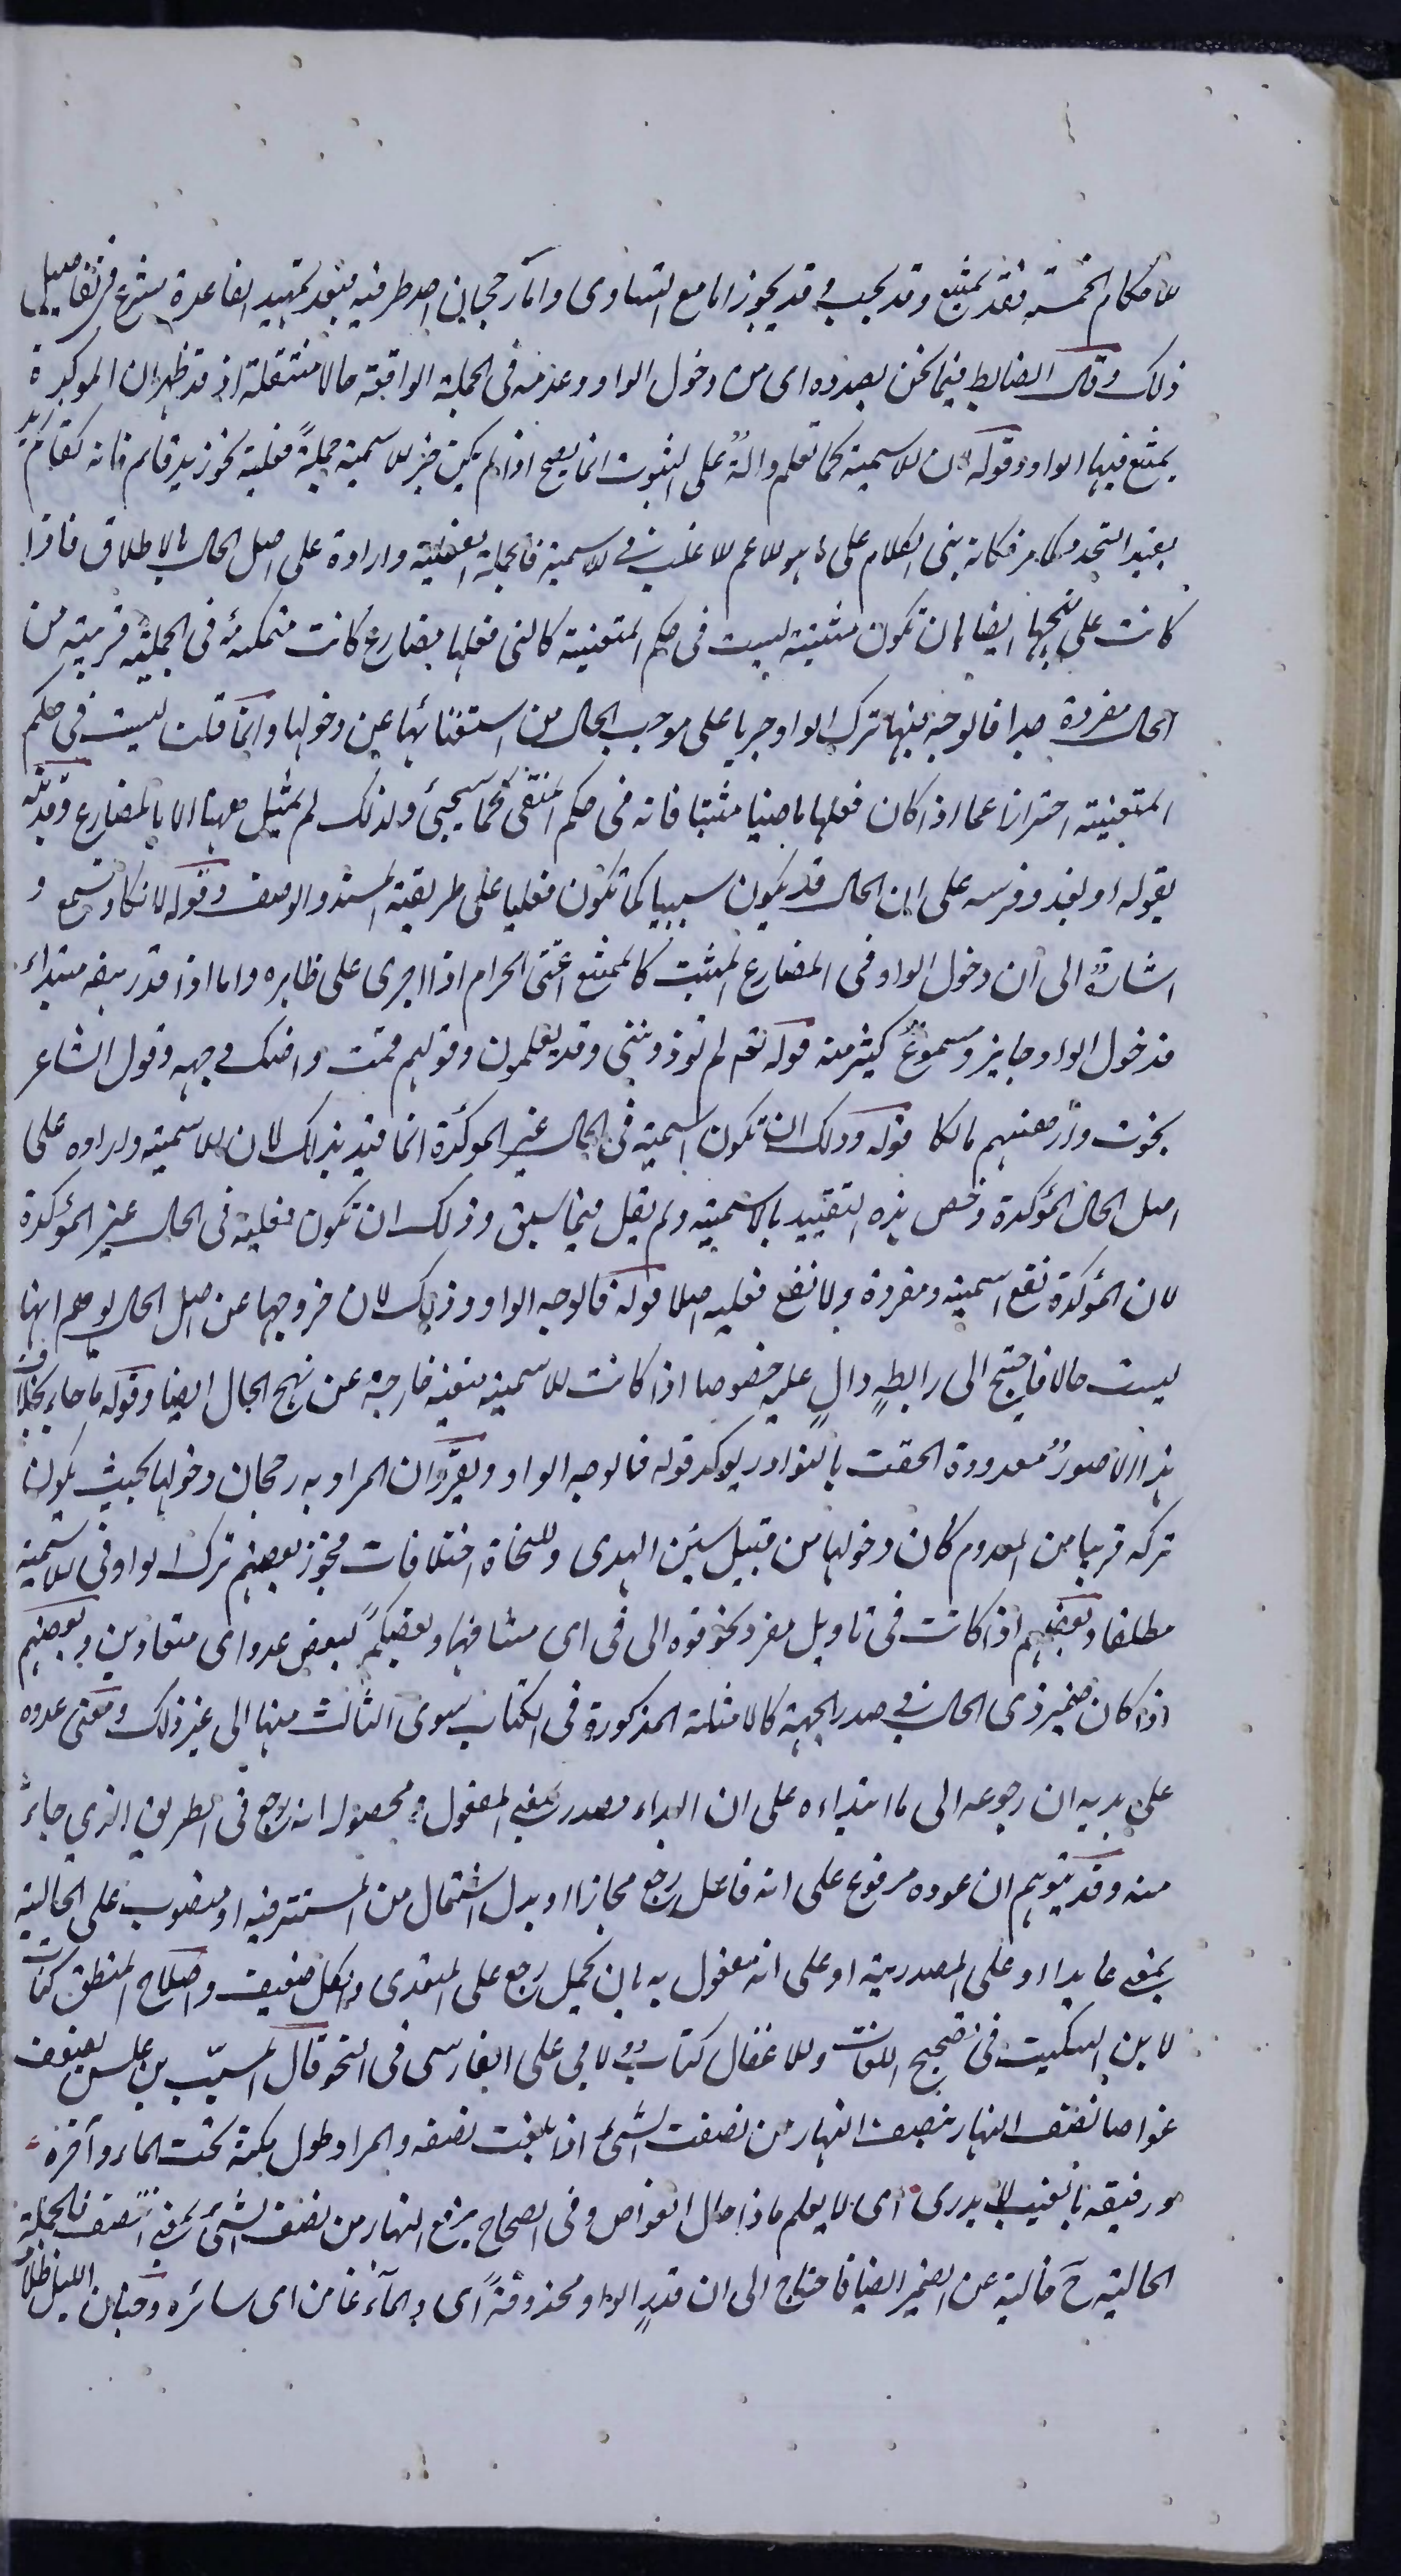 للاحكام الخمسة فقد يمتنع وقد يجب وقد يجوز اما مع التساوى واما رجحان احد طرفيه فبعد تمهيد القاعدة شرع فى تفاصيل
ذلك وقال الضابط فيما نحن بصدده اى من دخول الواو وعدمه فى الجملة الواقعة حالا منتقلة اذ قد ظهر ان الموكدة
يمتنع فيها الواو وقوله لان الاسمية كما تعلم دالة على الثبوت انما يصح اذا لم يكن خبر الاسمية جملة فعلية نحو زيد قام فانه كقام زيد
يفيد التجدد كما مر فكانه بنى الكلام على ما هو الاعم الاغلب فى الاسمية فالجملة الفعلية واردة على اصل الحال بالاطلاق فاذا
كانت على نهجها ايضا بان تكون مثبتة ليست فى حكم المنفية كالتى فعلها مضارع كانت متمكنة فى الجملة قريبة من
الحال مفردة جدا فالوجه فيها ترك الواو جريا على موجب الحال من استغنائها عن دخولها وانما قلت ليست فى حكم
المنفية احترازا عما اذا كان فعلها ماضيا مثبتا فانه فى حكم المنفى كما سيجئ ولذلك لم يمثل ههنا الا بالمضارع وقد نبه
بقوله او يغدو فرسه على ان الحال قد يكون سببيا كما تكون فعليا على طريقة المسند والوصف وقوله لا تكاد تسمع و
اشارة الى ان دخول الواو فى المضارع المثبت كالممتنع اعنى الحرام اذا اجرى على ظاهره واما اذا قدر بعده مبتداء
فدخول الواو جايز ومسموع كثير منه قوله تعم لم تؤذوننى وقد تعلمون وقولهم قمت واصك وجهه وقول الشاعر
نجوت وارهنهم مالكا قوله وذلك ان تكون اسمية فى الحال غير الموكدة انما قيد بذلك لان الاسمية واردة على
اصل الحال المؤكدة وخص هذه التقييد بالاسمية ولم يقل فيما سبق وذلك ان تكون فعلية فى الحال غير المؤكدة
لان المؤكدة تقع اسمية ومفردة ولا تقع فعلية اصلا قوله فالوجه الواو وذلك لان خروجها عن اصل الحال يوهم انها
ليست حالا فاحتيج الى رابطة دال عليه خصوصا اذا كانت الاسمية منفية خارجة عن نهج الحال ايضا وقوله ما جاء بخلاف
هذا الا صور معدودة الحقت بالنوادر يوكد قوله فالوجه الواو ويقرر ان المراد به رجحان دخولها بحيث يكون
تركه قريبا من المعدوم كان دخولها من قبيل سنن الهدى وللنحاة اختلافات فجوز بعضهم ترك الواو فى الاسمية
مطلقا وبعضهم اذا كانت فى تاويل مفرد نحو فوه الى فى اى مشافها وبعضكم لبعض عدو اى متعادين وبعضهم
اذا كان ضمير ذى الحال فى صدر الجملة كالامثلة المذكورة فى الكتاب سوى الثالث منها الى غير ذلك ومعنى عوده
على بدئه ان رجوعه الى ما ابتداءه على ان البداء مصدر بمعنى المفعول ومحصوله انه رجع فى الطريق الذي جاء
منه وقد يتوهم ان عوده مرفوع على انه فاعل رجع مجازا او بدل اشتمال من المستتر فيه او منصوب على الحالية
بمعنى عايدا او على المصدرية او على انه مفعول به بان يحمل رجع على المتعدى والكل ضعيف واصلاح المنطق كتاب
لابن السكيت فى تصحيح اللغات والاغفال كتاب لابي على الفارسى فى النحو قال المسيب بن علس يصف
غواصا نصف النهار نصيف النهار من نصفت الشئ اذا بلغت نصفه والمراد طول مكثه تحت الماء وآخره
ورفيقه بالغيب لا يدرى اى لا يعلم ماذا حال الغواص وفى الصحاح برفع النهار من نصف الشئ بمعنى انتصف فالجملة
الحالية ح خالية عن الضمير ايضا فاحتاج الى ان قدر الواو محذوفة اى والماء غامره اى ساتره وجنان الليل ظلا